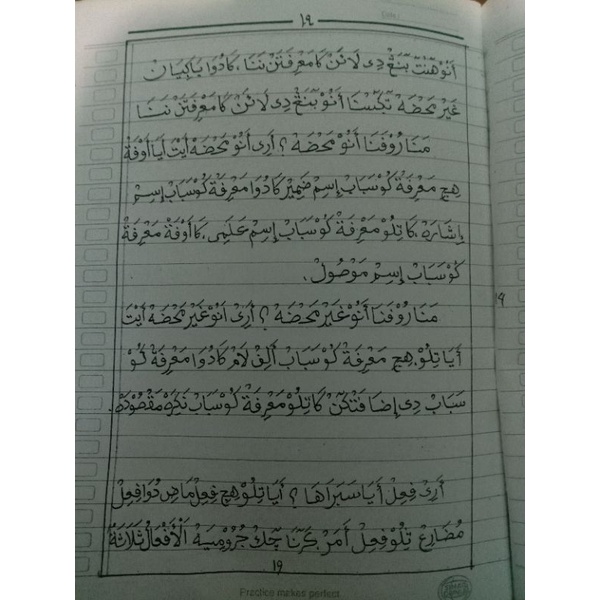 ١٩
أنو هنت بنڠ دى لائن كا معرفتن ننا، كادوا باكبيان
غير محضه تڮسنا أنو بنڠ دى لائن كا معرفتن ننا
منا روفنا أنو محضه ؟ أرى أنو محضه أيت أيا أوفة
هج معرفة كو سباب إسم ضمير كادوا معرفة كو سباب إسم
إشاره، كا تلو معرفة كو سباب إسم علمى، كا أوفة معرفة
كو سباب إسم موصول.
منا روفنا أنو غير محضه ؟ أرى أنو غير محضه أيت
أيا تلو، هج معرفة كو سباب ألف لام كادوا معرفة كو
سباب دى إضافتكن كا تلو معرفة كو سباب نكره مقصوده.
١٩
أرى فعل أيا سبراها ؟ أيا تلو هج فعل ماض دوا فعل
مضارع تلو فعل أمر، كرنا چك جروميه الأفعال ثلاثة
١٩
Practice makes perfect